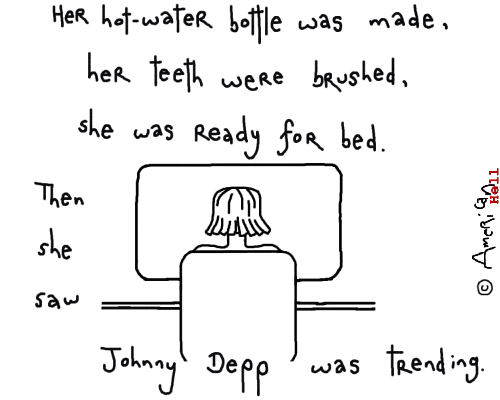 Her hot-water bottle was made,
her teeth were brushed,
she was ready for bed.
Then
she
saw
Johnny Depp was trending.
© American Hell